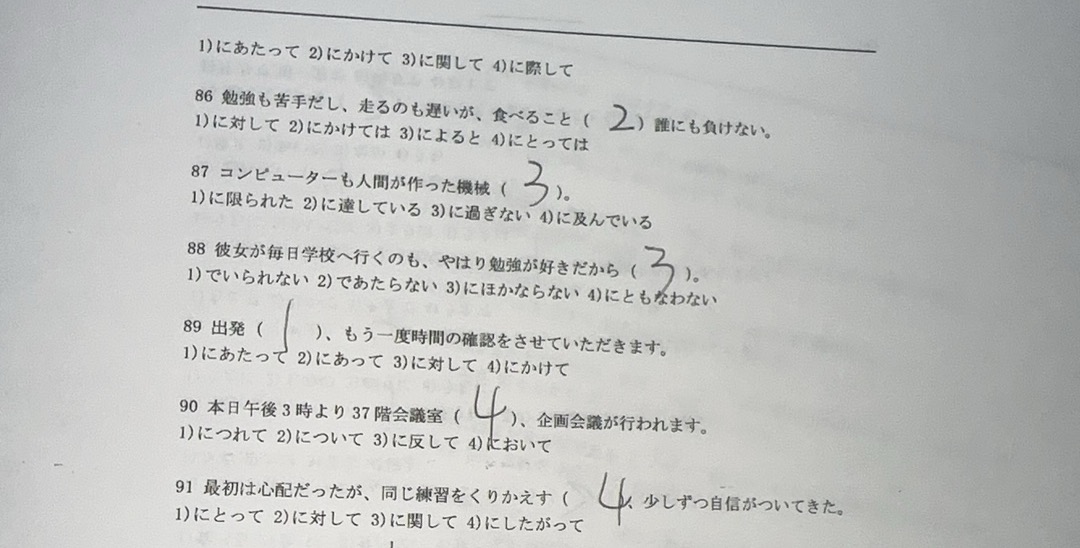 1)にあたって 2)にかけて 3)に関して 4)に際して
86 勉強も苦手だし、走るのも遅いが、食べること( 2 )誰にも負けない。
1)に対して 2)にかけては 3)によると 4)にとっては
87 コンピューターも人間が作った機械( 3 )。
1)に限られた 2)に達している 3)に過ぎない 4)に及んでいる
88 彼女が毎日学校へ行くのも、やはり勉強が好きだから( 3 )。
1)でいられない 2)であたらない 3)にほかならない 4)にともなわない
89 出発( 1 )、もう一度時間の確認をさせていただきます。
1)にあたって 2)にあって 3)に対して 4)にかけて
90 本日午後3時より37階会議室( 4 )、企画会議が行われます。
1)につれて 2)について 3)に反して 4)において
91 最初は心配だったが、同じ練習をくりかえす( 4 、少しずつ自信がついてきた。
1)にとって 2)に対して 3)に関して 4)にしたがって